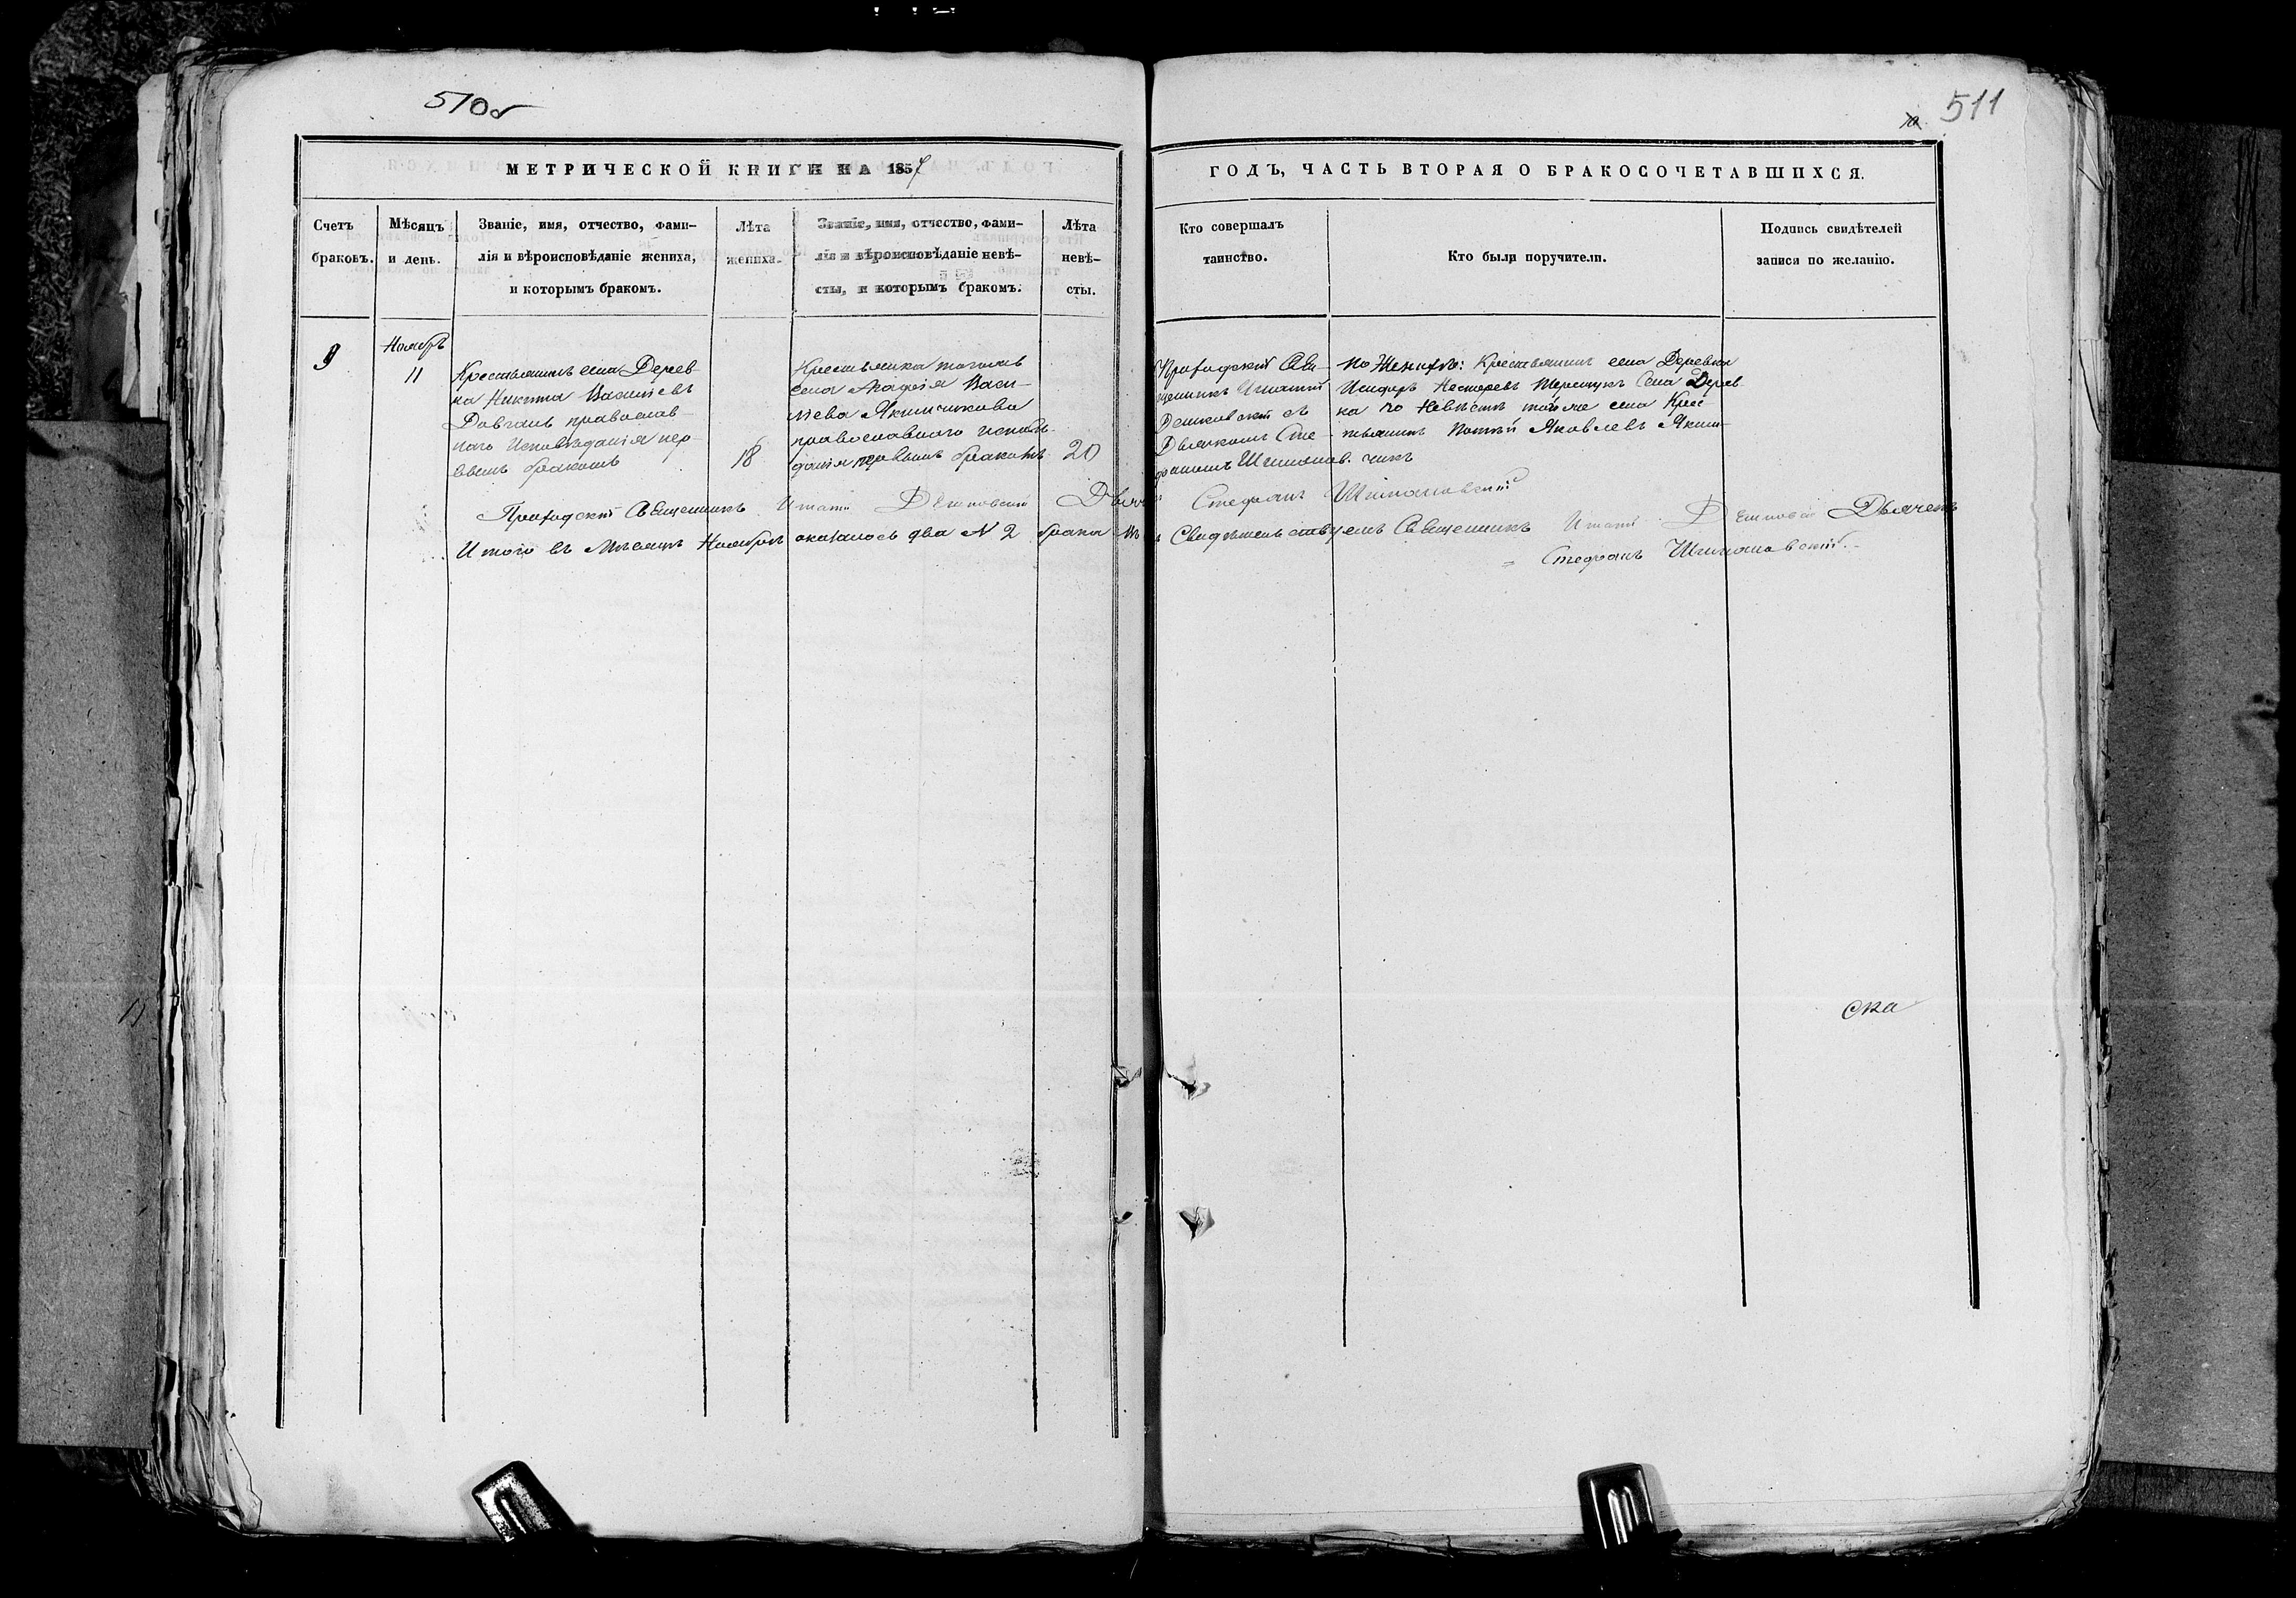 510б
511
МЕТРИЧЕСКОЙ КНИГИ НА 1857
ГОДЪ, ЧАСТЬ ВТОРАЯ О БРАКОСОЧЕТАВШИХСЯ.
Счетъ
браковъ.
Мѣсяцъ
и день.
Званіе, имя, отчество, фами-
лія и вѣроисповѣданіе жениха,
и которымъ бракомъ.
Лѣта
жениха.
Званіе, имя, отчество, фами-
лія и вѣроисповѣданіе невѣ-
сты, и которымъ бракомъ.
Лѣта
невѣ-
сты.
Кто совершалъ
таинство.
Кто были поручители.
Подпись свидѣтелей
записи по желанію.
9
Ноябрь
11
Крестьянинъ села Дерев-
на Никита Васильевъ
Довгань православ-
наго исповѣданія пер-
вымъ бракомъ
18
Крестьянка тогожъ
села Агафія Васи-
льева Якимчикова
православного исповѣ-
данія первымъ бракомъ
20
Приходскій Свя-
щенникъ Игнатій
съ
Дьячкомъ Сте-
фаномъ Шиманов.
По Женихѣ: Крестьянинъ села Деревна
Исидоръ Нестеревъ Терещукъ Села Дерев
на по Невѣстѣ той же села Крес
тьянинъ Яковлевъ Яким
чикъ
Приходскій Священникъ Игнатій Дьяч
Стефанъ Шимановскій
Итого въ Мѣсяцѣ Ноябрѣ оказалось два N 2 брака
Свидѣтельствуемъ Священникъ Игнатій Дьячекъ
Стефанъ Шимановскій.
ска